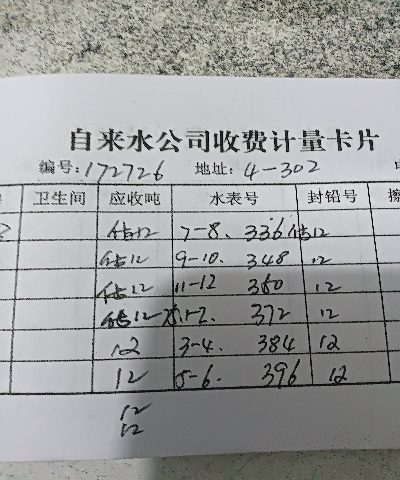 自来水公司收费计量卡片
编号: 172726 地址: 4-302
卫生间 应收吨 水表号 封铅号
估12 7-8. 336 估12
估12 9-10. 348 12
估12 11-12 360 12
估12 1-2. 372 12
12 3-4. 384 12
12 5-6. 396 12
12
12